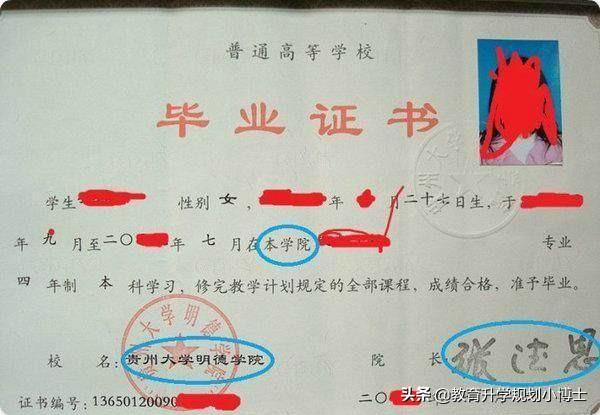 普通高等学校
毕业证书
学生 性别 女, 年 月二十七日生,于
年 九 月至二〇 年 七 月在本学院 专业
四 年制 本 科学习,修完教学计划规定的全部课程,成绩合格,准予毕业。
贵州大学明德学院
校 名:贵州大学明德学院 院 长 张德恩
证书编号:13650120090 二〇
头条 @教育升学规划小博士